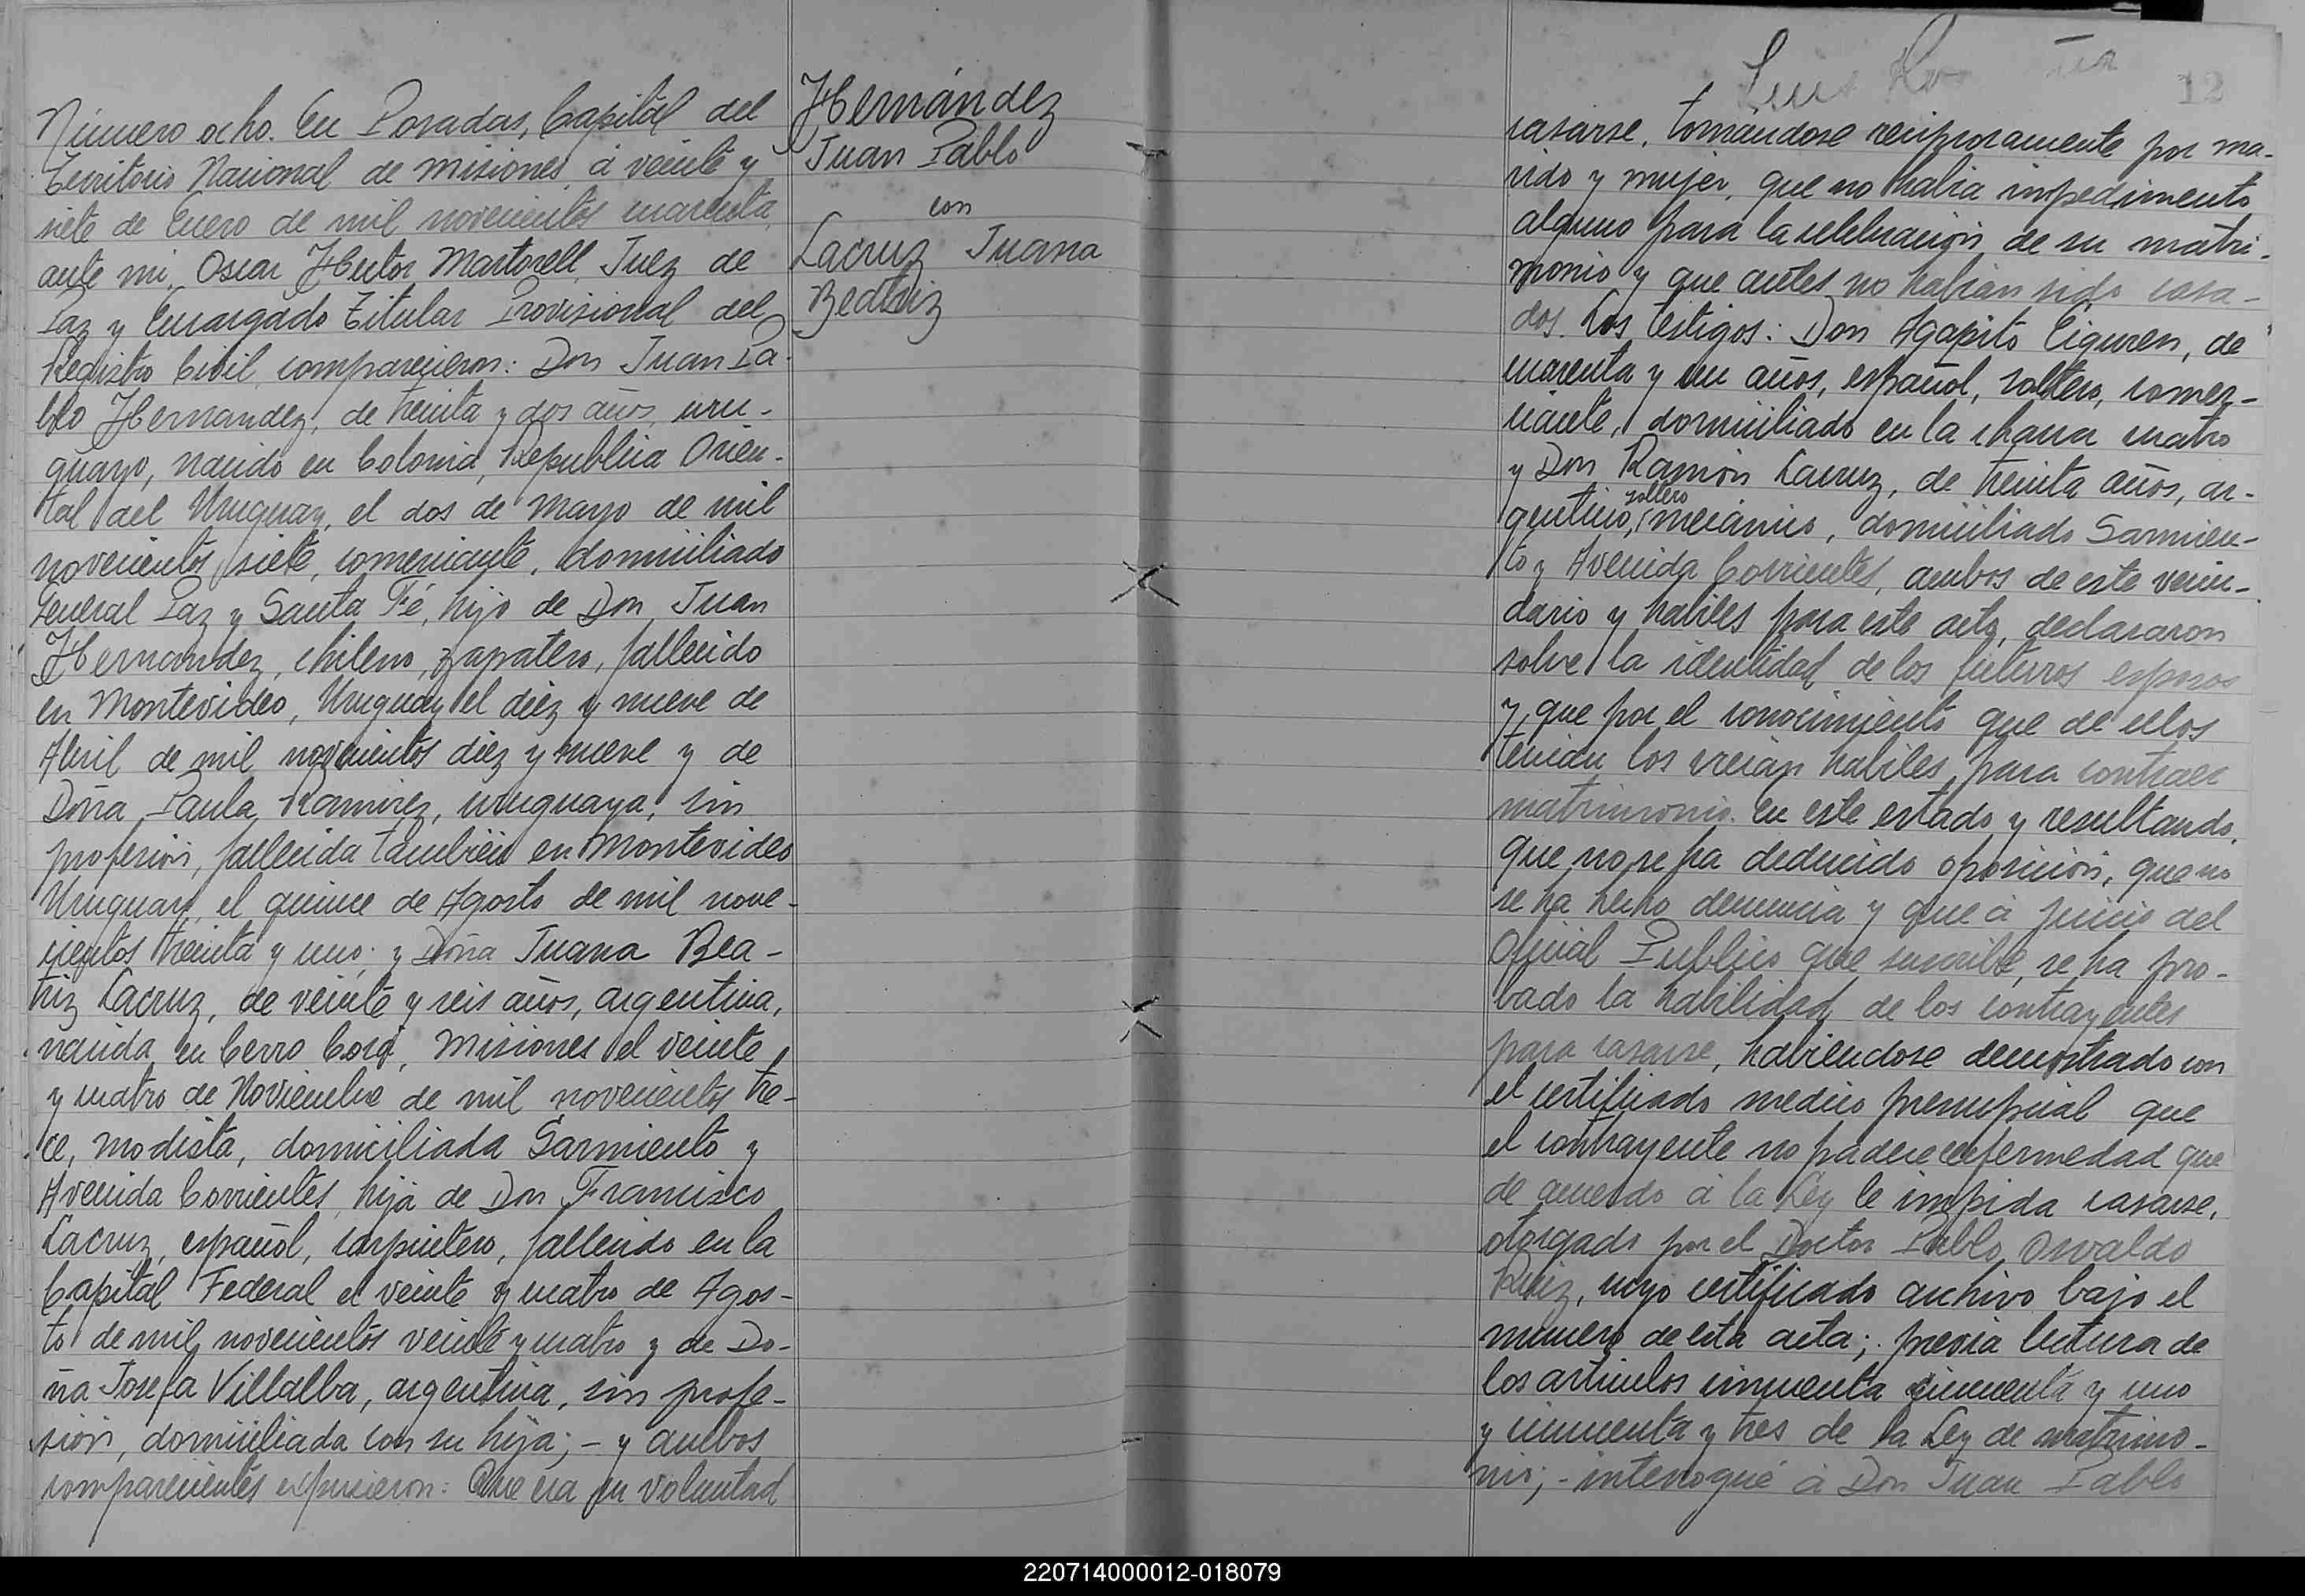 Número ocho. En Posadas, Capital del
Territorio Nacional de Misiones, á veinte y
siete de Enero de mil novecientos cuarenta,
ante mi, Oscar Hector Martorell, Juez de
Paz y Encargado Titular Provisional del
Registro Civil, comparecieron: Don Juan Pa-
blo Hernandez, de treinta y dos años, uru-
guayo, nacido en Colonia, Republica Orien-
tal del Uruguay, el dos de Mayo de mil
novecientos siete, comerciante, domiciliado
General Paz y Santa Fé, hijo de Don Juan
Hernandez, chileno, zapatero, fallecido
en Montevideo, Uruguay el diez y nueve de
Abril de mil novecientos diez y nueve y de
Doña Paula Ramirez, uruguaya, sin
profesión, fallecida tambien en Montevideo
Uruguay, el quince de Agosto de mil nove-
cientos treinta y uno; y Doña Juana Bea-
triz Lacruz, de veinte y seis años, argentina,
nacida en Cerro Corá, Misiones el veinte
y cuatro de Noviembre de mil novecientos tre-
ce, modista, domiciliada Sarmiento y
Avenida Corrientes, hija de Don Francisco
Lacruz, español, carpintero, fallecido en la
Capital Federal el veinte y cuatro de Agos-
to de mil novecientos veinte y cuatro y de Do-
ña Josefa Villalba, argentina, sin profe-
sión, domiciliada con su hija; - y ambos
comparecientes expusieron: Que era su voluntad
Hernández
Juan Pablo
con
Lacruz Juana
Beatriz
12
casarse, tomándose reciprocamente por ma-
rido y mujer, que no habia impedimento
alguno para la celebración de su matri-
monio y que antes no habian sido casa-
dos. Los testigos: Don Agapito Eiguren, de
cuarenta y un años, español, soltero, comer-
ciante, domiciliado en la chacra cuatro
y Don Ramón Lacruz, de treinta años, ar-
soltero
gentino, mecánico, domiciliado Sarmien-
to y Avenida Corrientes, ambos de este vecin-
dario y habiles para este acto, declararon
sobre la identidad de los futuros esposos
y que por el conocimiento que de ellos
tenian los creian habiles para contraer
matrimonio. En este estado y resultando
que no se ha deducido oposición, que no
se ha hecho denuncia y que á juicio del
Oficial Publico que suscribe, se ha pro-
bado la habilidad de los contrayentes
para casarse, habiendose demostrado con
el certificado medico prenupcial que
el contrayente no padece enfermedad que
de acuerdo á la Ley le impida casarse,
otorgado por el Doctor Pablo Osvaldo
Ruiz, cuyo certificado archivo bajo el
numero de esta acta; previa lectura de
los articulos cincuenta cincuenta y uno
y cincuenta y tres de la Ley de matrimo-
nio; - interrogué á Don Juan Pablo
220714000012-018079